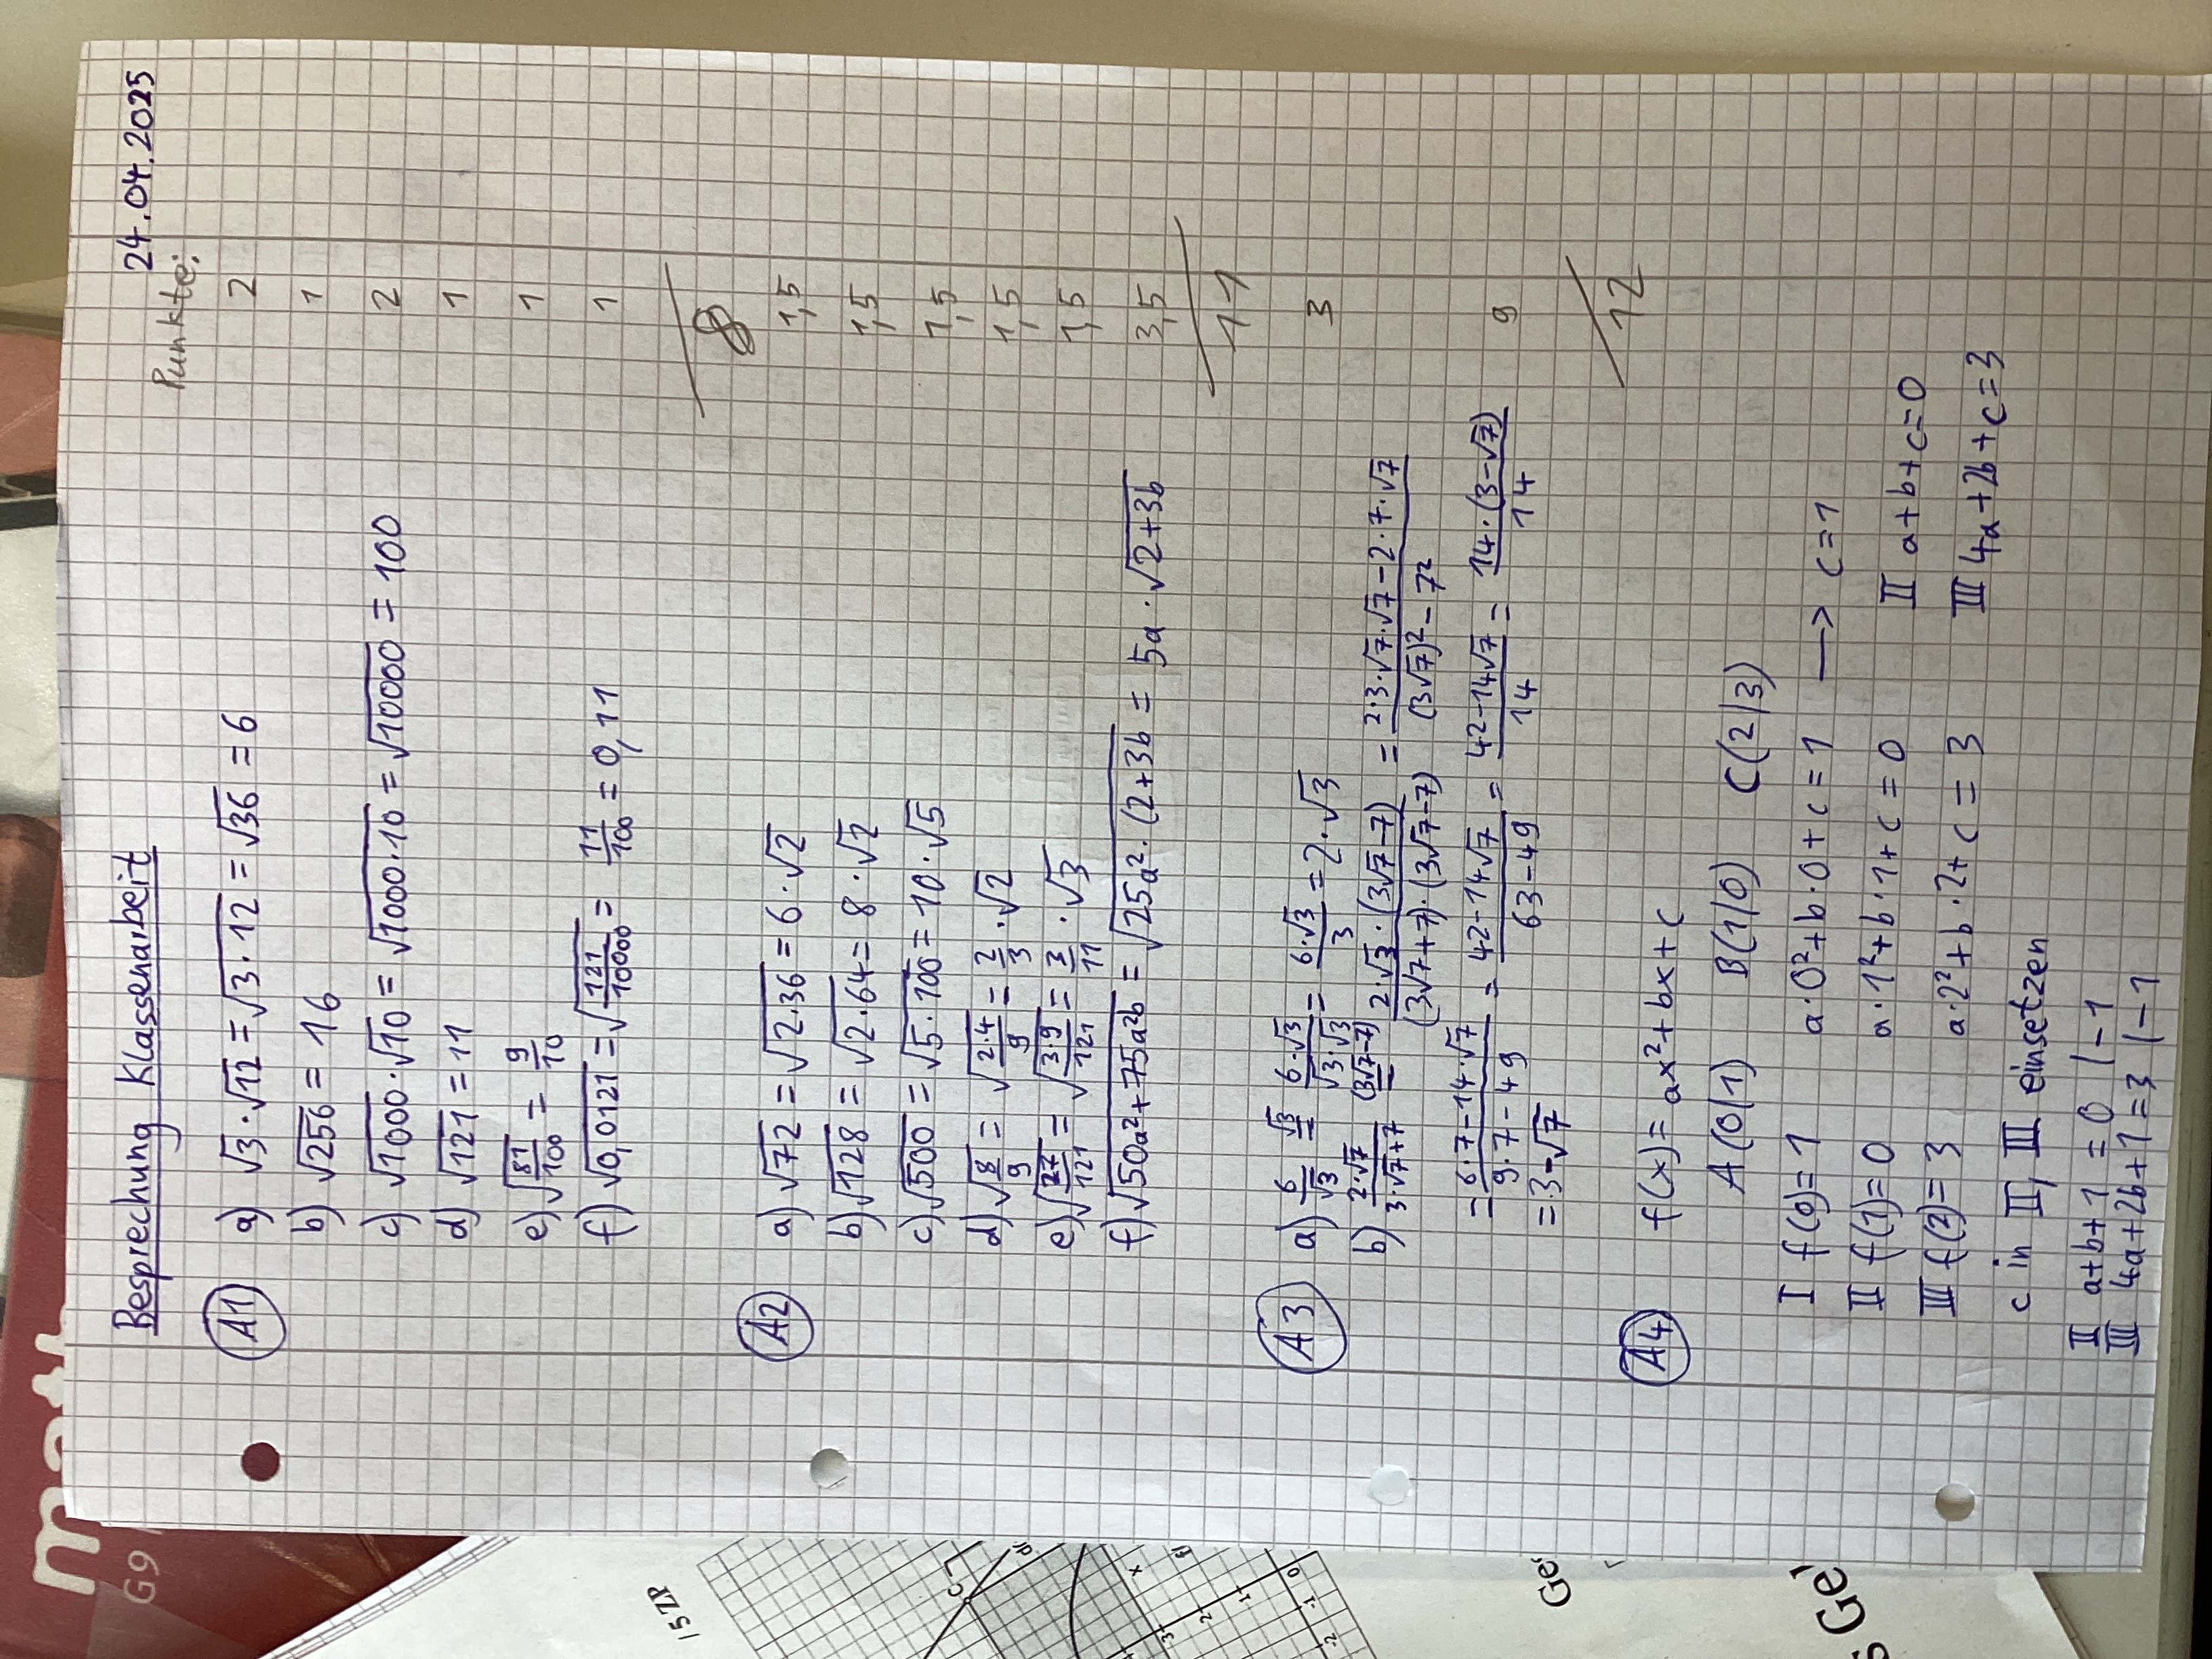 24.04.2025
Besprechung Klassenarbeit
Punkte:
A1 a) √3·√12 = √(3·12) = √36 = 6 2
b) √256 = 16 1
c) √1000·√10 = √(1000·10) = √10000 = 100 2
d) √121 = 11 1
e) √(81/100) = 9/10 1
f) √0,0121 = √(121/10000) = 11/100 = 0,11 1
8
A2 a) √72 = √(2·36) = 6·√2 1,5
b) √128 = √(2·64) = 8·√2 1,5
c) √500 = √(5·100) = 10·√5 1,5
d) √(8/9) = √(2·4/9) = 2/3·√2 1,5
e) √(27/121) = √(3·9/121) = 3/11·√3 1,5
f) √(50a²+75a²b) = √(25a²·(2+3b) = 5a·√(2+3b) 3,5
11
A3 a) 6/√3 = √3 = 6·√3/√3·√3 = 6·√3/3 = 2·√3 3
b) 2·√7/3·√7+7 (3√7-7) = 2·√3·(3√7-7)/(3√7+7)·(3√7-7) = 2·3·√7·√7-2·7·√7/(3√7)²-7²
= 6·7-14·√7/9·7-49 = 42-14·√7/63-49 = 42-14√7/14 = 14·(3-√7)/14 9
= 3-√7
12
A4 f(x) = ax²+bx+c
A(0|1) B(1|0) C(2|3)
I f(0)=1 a·0²+b·0+c=1 → c=1
II f(1)=0 a·1²+b·1+c=0 II a+b+c=0
III f(2)=3 a·2²+b·2+c=3 III 4a+2b+c=3
c in II, III einsetzen
II a+b+1=0 |-1
III 4a+2b+1=3 |-1
G9
15ZR
C
x
-3
-2
-1
0
-1
-2